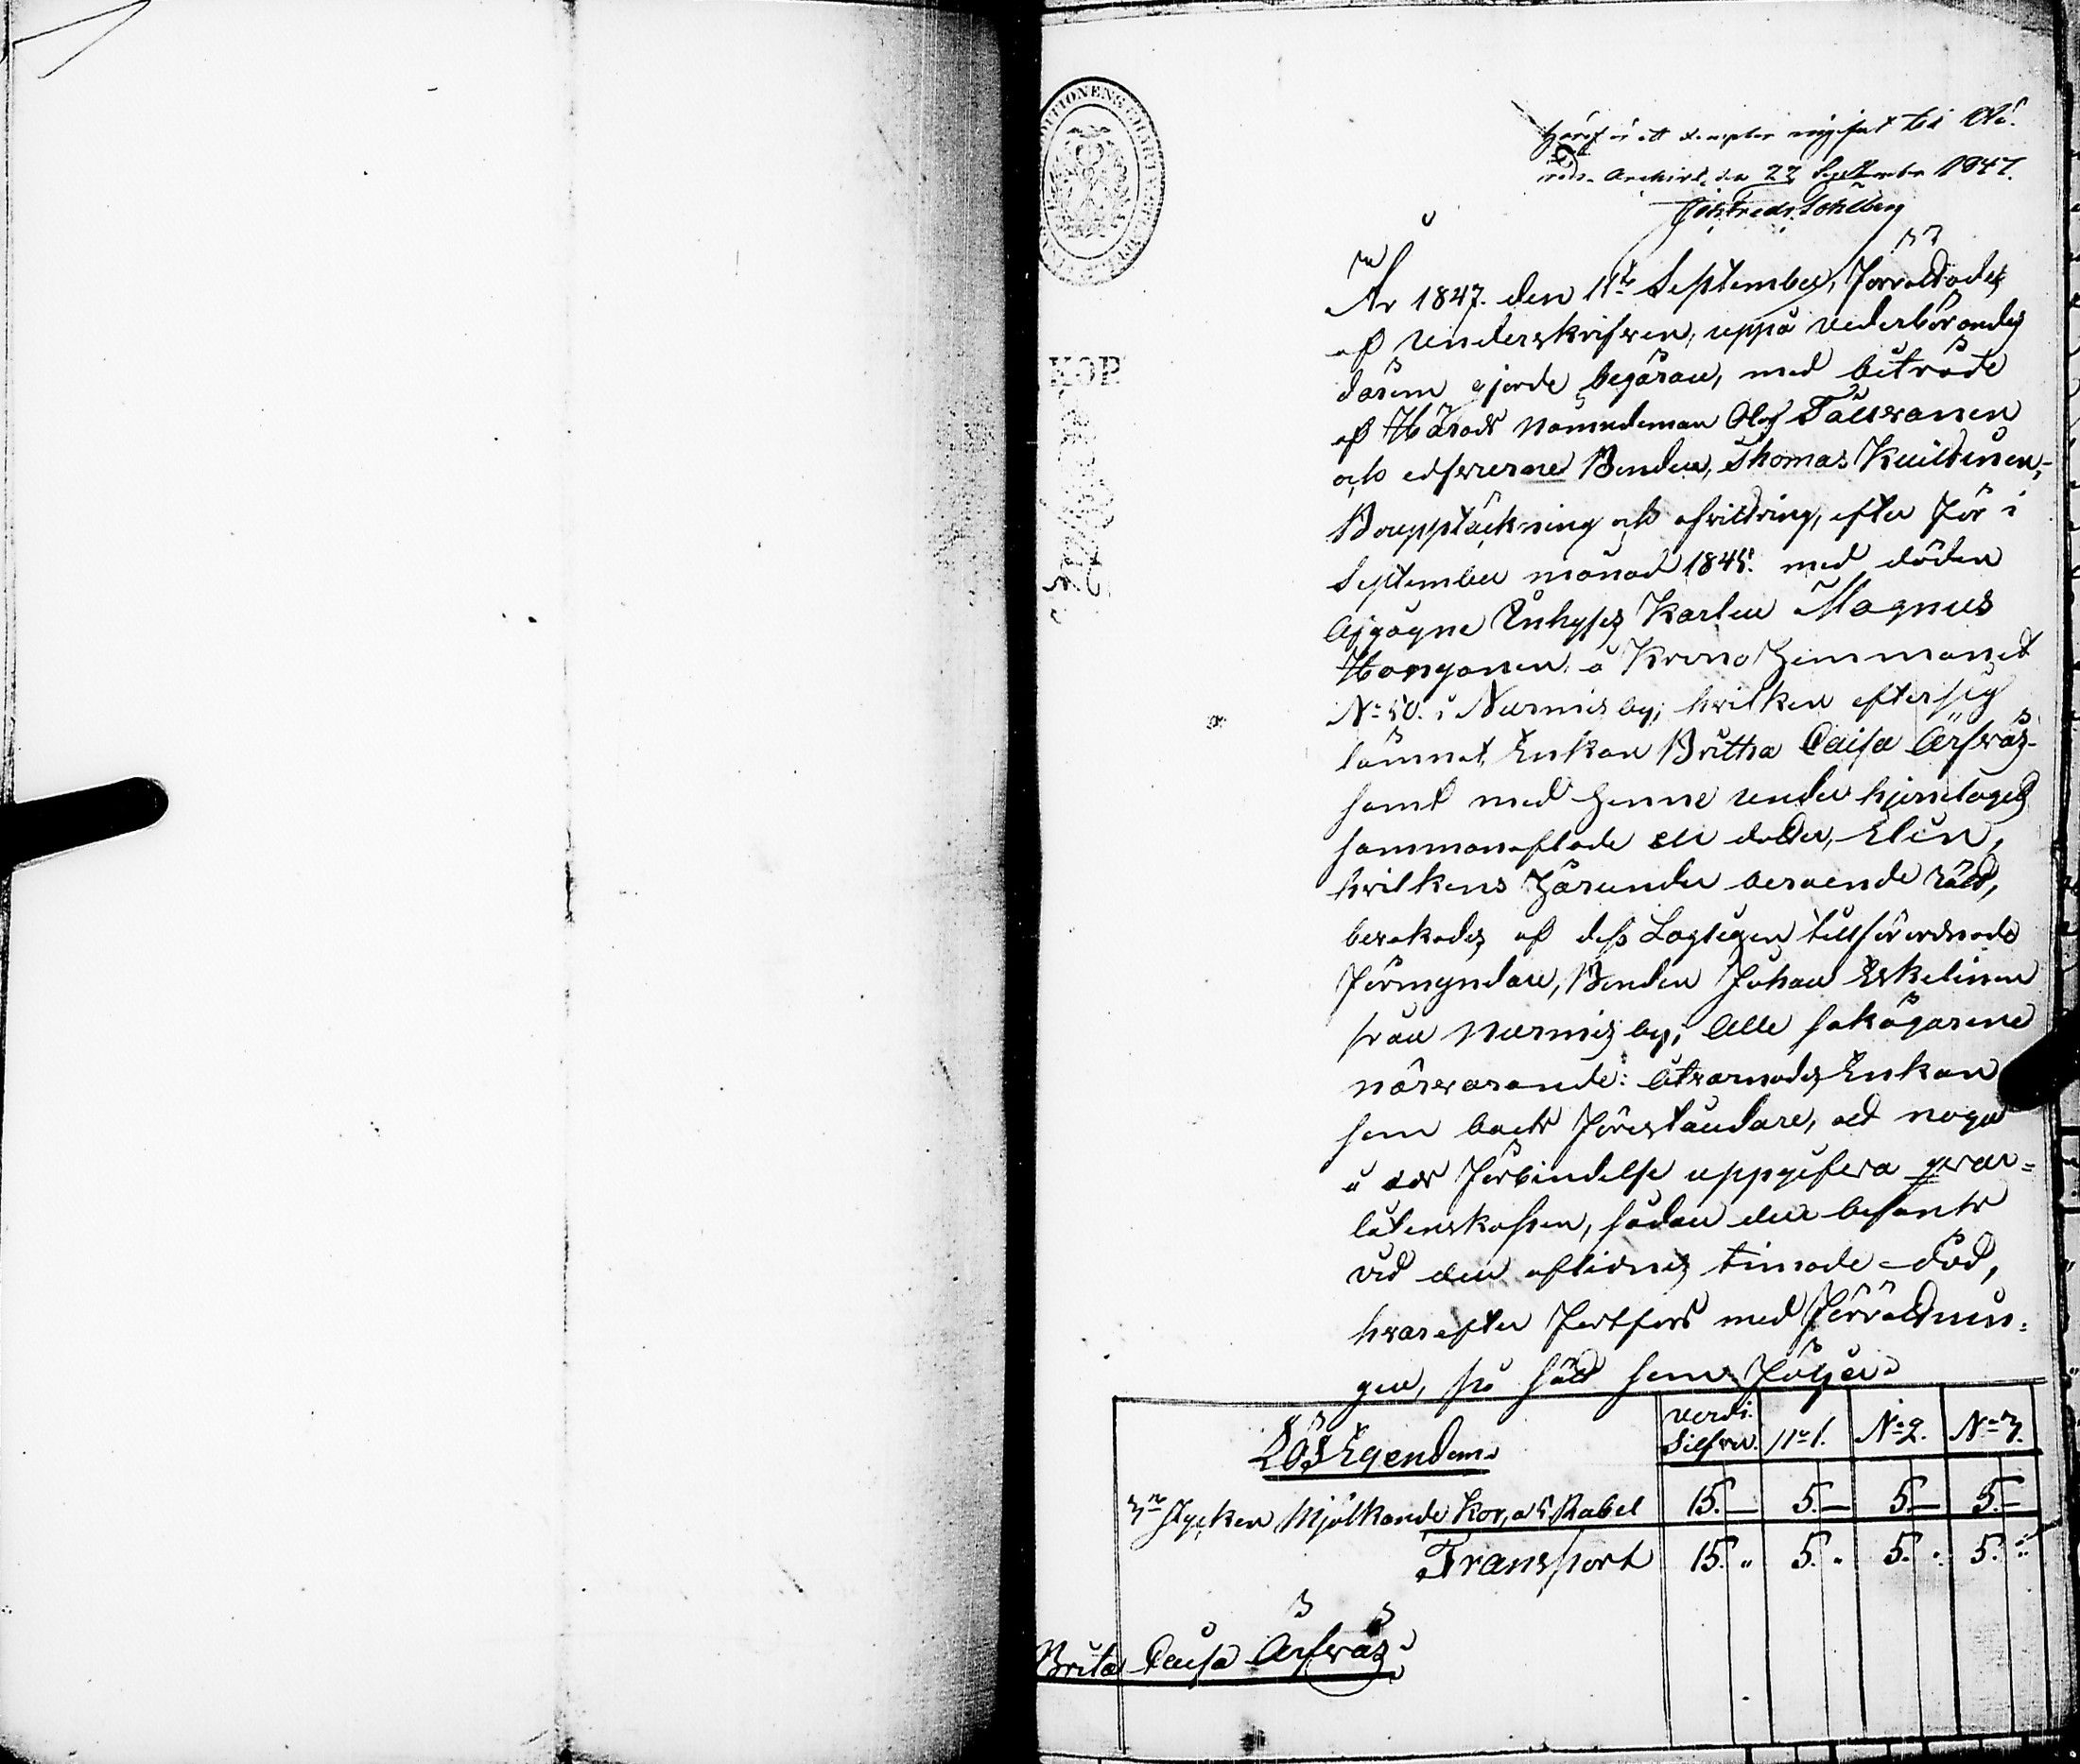 Häraf är ett exemplar ingifvet till Hä-
rads Archivet, den 22 September 1847.
Joh Fredr. Sohlberg
År 1847. den 11te September, förrättades
af Underskrifven, uppå vederbörandes
därom gjorde begäran, med biträde
af Härads Nämndeman Olof Tälwanen
och edsvurne Bonden, Thomas Kuittinen,
Bouppteckning och afvittring, efter för i
September månad 1845. med döden
afgågne Inhyses Karlen Magnus
Honganen å Krono Hemmanet
No 50. i Nurmis by; hvilken efter sig
lämnat Enkan Britha Caisa Ärfwäs-
samt med henne under hjonelaget
sammanaflade en dotter, Elin,
hvilkens härunder beroende rätt,
bevakades af dess Lagligen tillförordnade
förmyndare, Bonden Johan Eskelinen
från Nurmis by; Alle sakägarene
närvarande: Åtvarnades Enkan
som boets föreståndare, att noga
i eds förbindelse uppgifva qvar-
låtenskapen, sådan den befants
vid den aflidnes timade död,
hvarefter fortfors med förrättnin-
gen, på sätt som följer
Verdi. Silfver. | No 1. | No 2. | No 3.
Lös Egendom
3ne stycken Mjölkande Kor, a 5 Rubel | 15.— | 5.— | 5.— | 5.—
Transport | 15. " | 5. " | 5. " | 5. "
Brita Caisa Ärfwäs